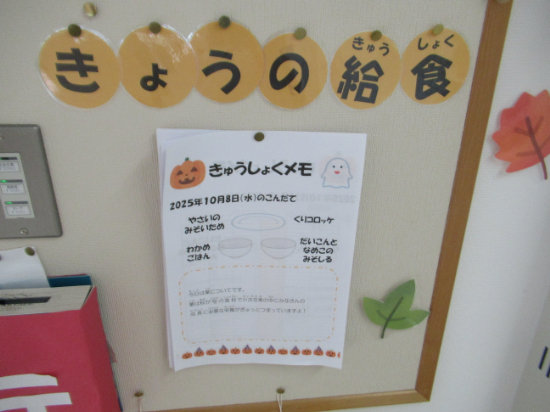 きょうの給食
きゅう しょく
きゅうしょくメモ
2025年10月8日(水)のこんだて
やさいの
みそいため
くりコロッケ
わかめ
ごはん
だいこんと
なめこの
みそしる
今日は栗についてです。